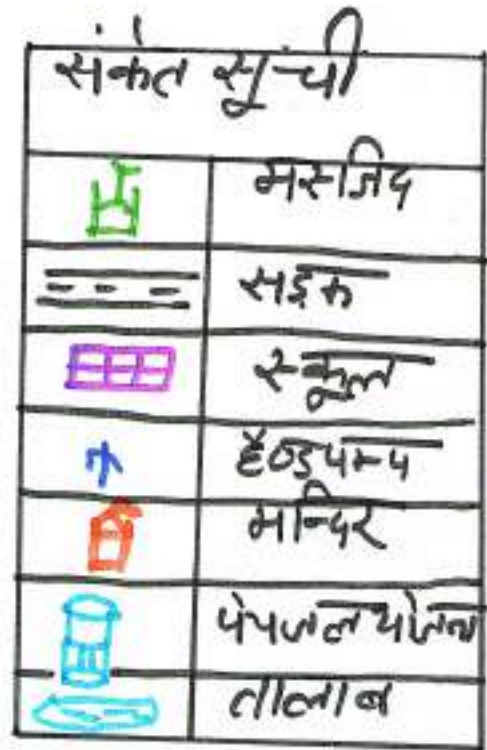 संकेत सूची
मस्जिद
सड़क
स्कूल
हैण्डपम्प
मन्दिर
पेयजल योजना
तालाब